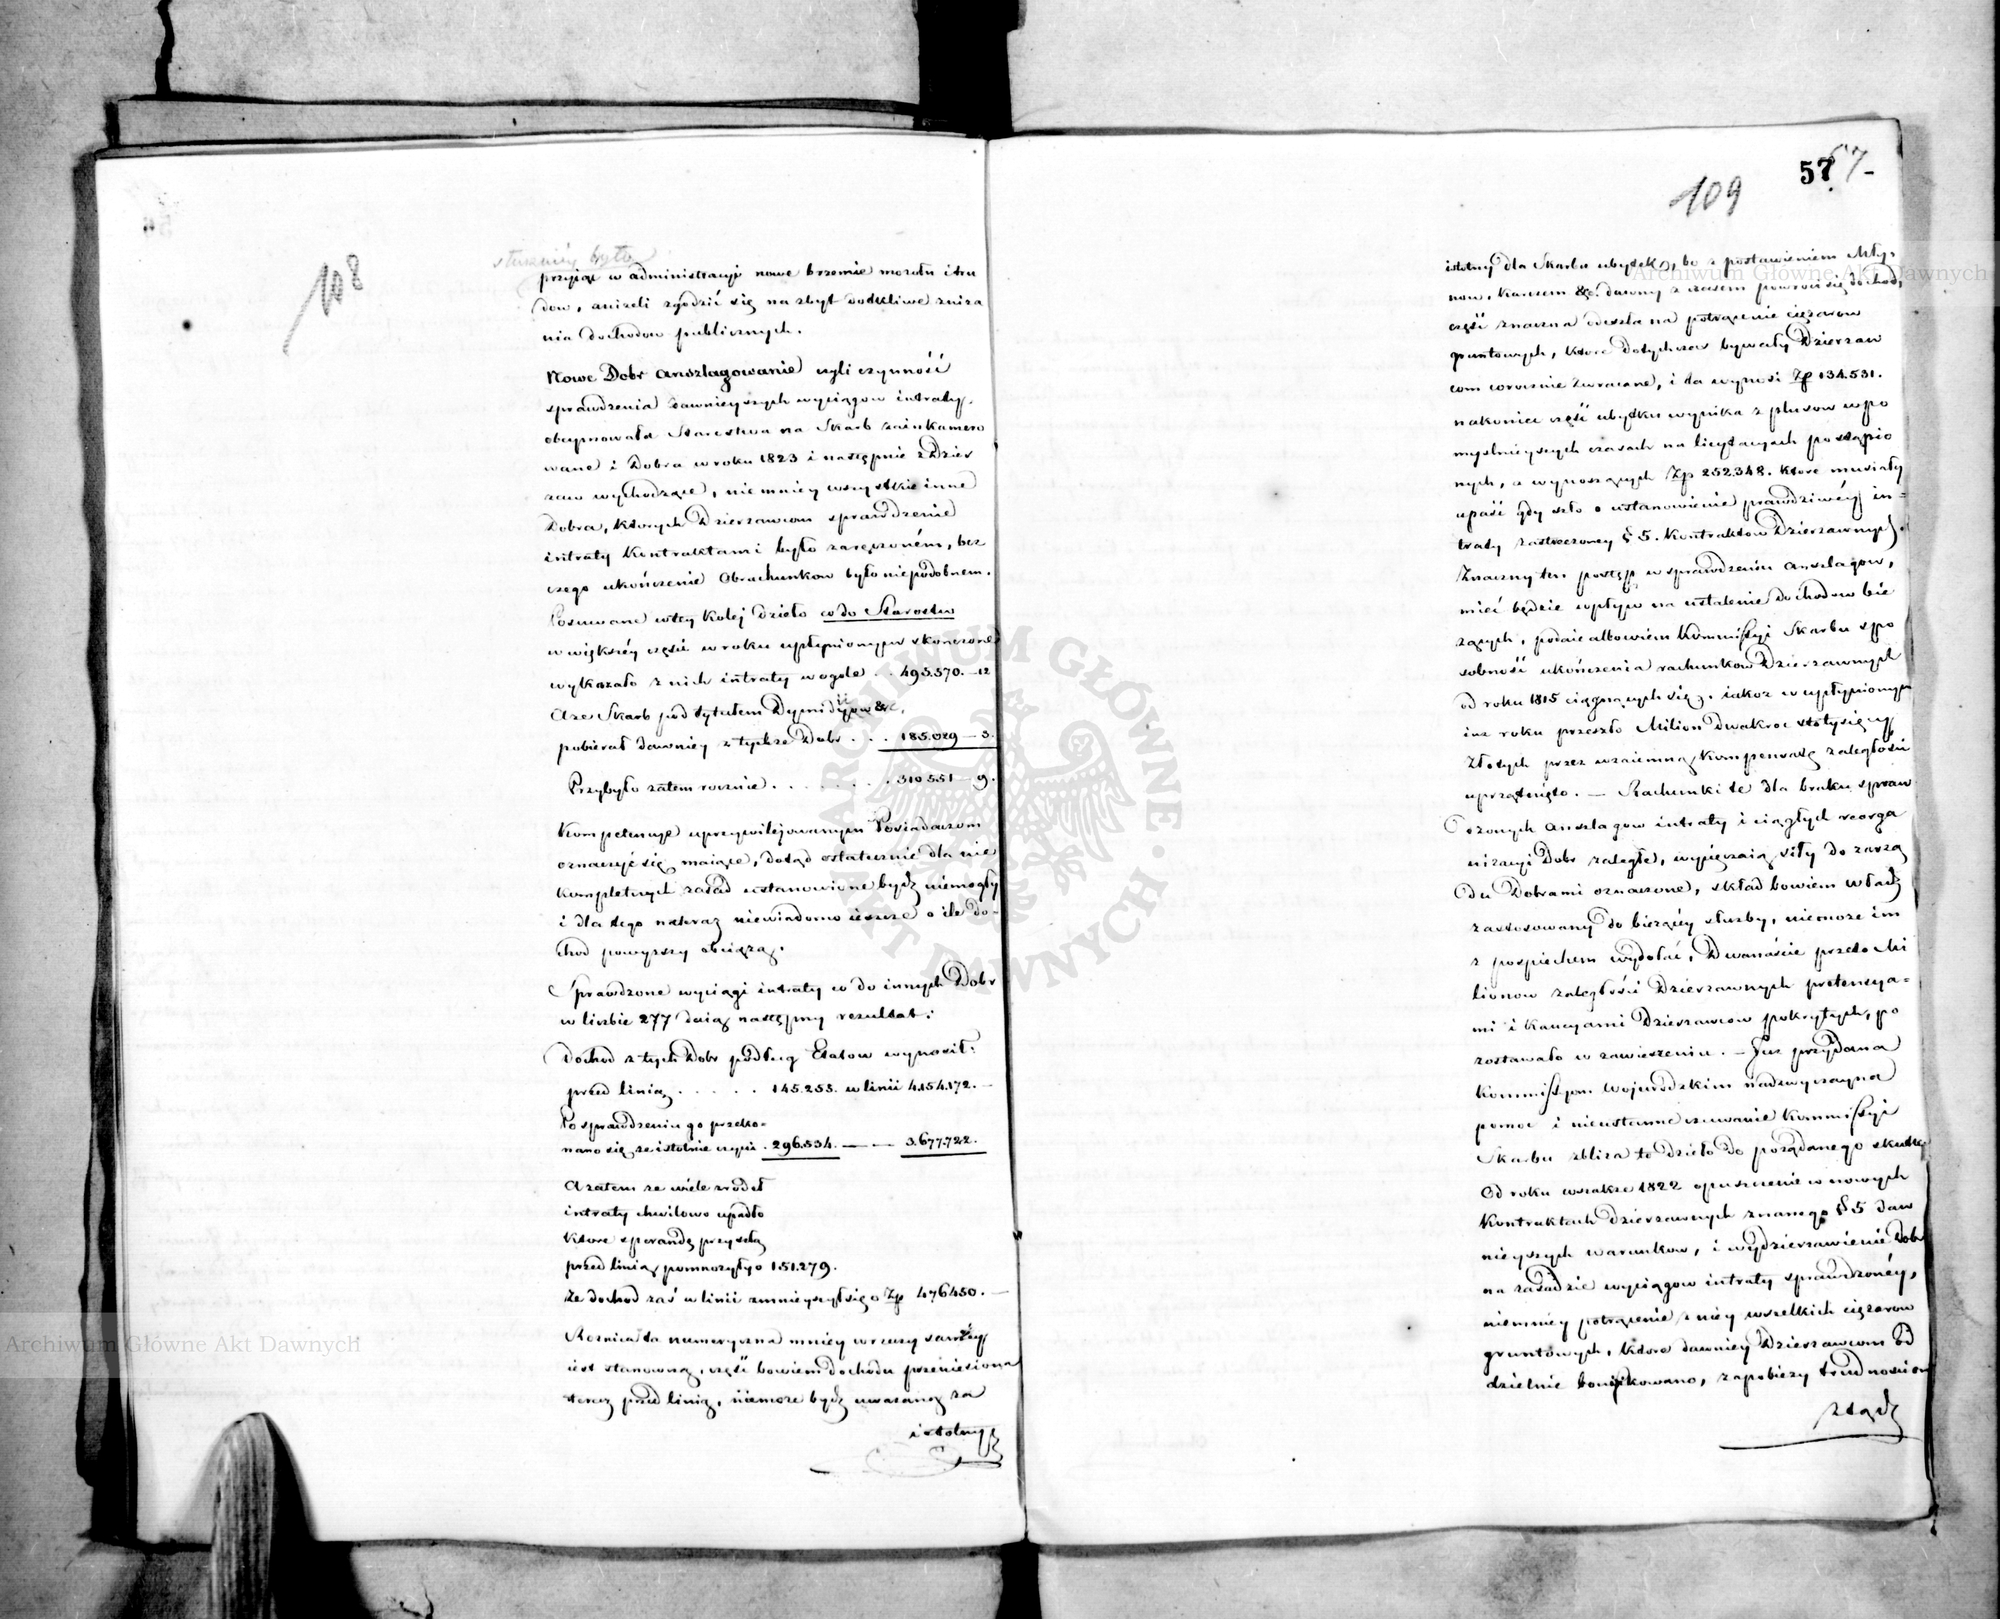 108
słuszniéy było
przyjąć w administracyi nowe brzemie mozołu i tru
dow, aniżeli zgodzić się na zbyt dotkliwe zniża
nia dochodow publicznych.
Nowe Dobr anszlagowanie czyli czynność
sprawdzenia dawnieyszych wyciągow intraty,
obeymowała Starostwa na Skarb zainkamero
wane i Dobra w roku 1823 i następnie z Dzier
zaw wychodzące, niemniéy wszystkie inne
Dobra, ktorych Dzierzawcom sprawdzenie
intraty Kontraktami było zaręczoném, bez
czego ukończenie Obrachunkow było niepodobnem.
Posuwane w tey kolej dzieło co do Starostw
w większéy części w roku upłynionym skonczone
wykazało z nich intraty w ogole . . 495.570. — 12
Aże Skarb pod tytułem Dymidyow &c.
pobierał dawniey z tychże Dobr . . . 185.029 — 3.
Przybyło zatem rocznie . . . . . . . 310551 — 9.
Kompetencye uprzywilejowanym Posiadaczom
oznaczyć się maiące, dotąd ostatecznie dla nie
kompletnych zasad ustanowione bydź niemogły
i dla tego nateraz niewiadomo ieszcze o ile do-
chod powyższy obciążą.
Sprawdzone wyciągi intraty co do innych Dobr
w liczbie 277 daią następny rezultat:
Dochod z tych Dobr podług Etatow wynosił:
przed linią . . . . . 145.255. w linii 4.154.172. —
Po sprawdzeniu go przeko-
nano się ze istotnie czyni . 296.534. — — 3.677.722.
A zatem ze wiele zrodeł
intraty chwilowo upadło
ktore sperandę przyszłą
przed linią pomnożyły o 151.279.
Ze dochod zaś w linii zmnieyszył się o Zp 476450. —
Roznica ta numeryczna mniéy w rzeczy saméy
iest stanowczą, część bowiem dochodu przeniesiona
teraz przed linią, niemoże bydź uważaną za
istotny
57
57
109
istotny dla Skarbu ubytek, bo z postawieniem Mły-
now, Karczem &c. dawny z czasem powroci się dochod,
część znaczna odeszła na potrącenie ciężarow
gruntowych, ktore dotychczas bywały Dzierzaw
com corocznie zwracane, i ta wynosi Zp 134.531.
nakoniec część ubytku wynika z plusow w po
myslnieyszych czasach na licytacyach postąpio
nych, a wynoszących Zp 252.348. ktore musiały
upaść gdy szło o ustanowienie prawdziwéy in-
traty zastrzeżoney § 5. Kontraktow Dzierzawnych.
Znaczny ten postęp w sprawdzeniu anszlagow,
mieć będzie wpływ na ustalenie dochodow bie
żących, podaie albowiem Kommissyi Skarbu spo
sobność ukończenia rachunkow Dzierzawnych
od roku 1815 ciągnących się, iakoz w upłynionym
iuz roku przeszło Milion dwakroć stotysięcy
Złotych przez wzaiemną Kompensatę zaległości
uprzątnięto. — Rachunki te dla braku spraw
dzonych anszlagow intraty i ciągłych reorga
nizacyi Dobr zaległe, wypieraią siły do zarzą
du Dobrami oznaczone, skład bowiem władz
zastosowany do bieżącéy służby, niemoże im
z pospiechem wydołać, Dwanaście przeto Mi
lionow zaległości Dzierzawnych pretensya-
mi i kaucyami Dzierzawcow pokrytych, po
zostawało w zawieszeniu. — Już przydana
Kommissyom Wojewodzkim nadzwyczayna
pomoc i nieustanne czuwanie Kommissyi
Skarbu zbliza to dzieło do pożądanego skutku
Od roku wszakze 1822 opuszczenie w nowych
Kontraktach dzierzawnych znanego § 5 daw
nieyszych warunkow, i wydzierzawienie Dobr
na zasadzie wyciągow intraty sprawdzonéy,
niemniey potrącenie z niéy wszelkich ciężarow
gruntowych, ktore dawniey Dzierzawcom od
dzielnie bonifikowano, zapobieży trudnościom
ztąd
Archiwum Główne Akt Dawnych
Archiwum Główne Akt Dawnych
ARCHIWUM GŁÓWNE AKT DAWNYCH